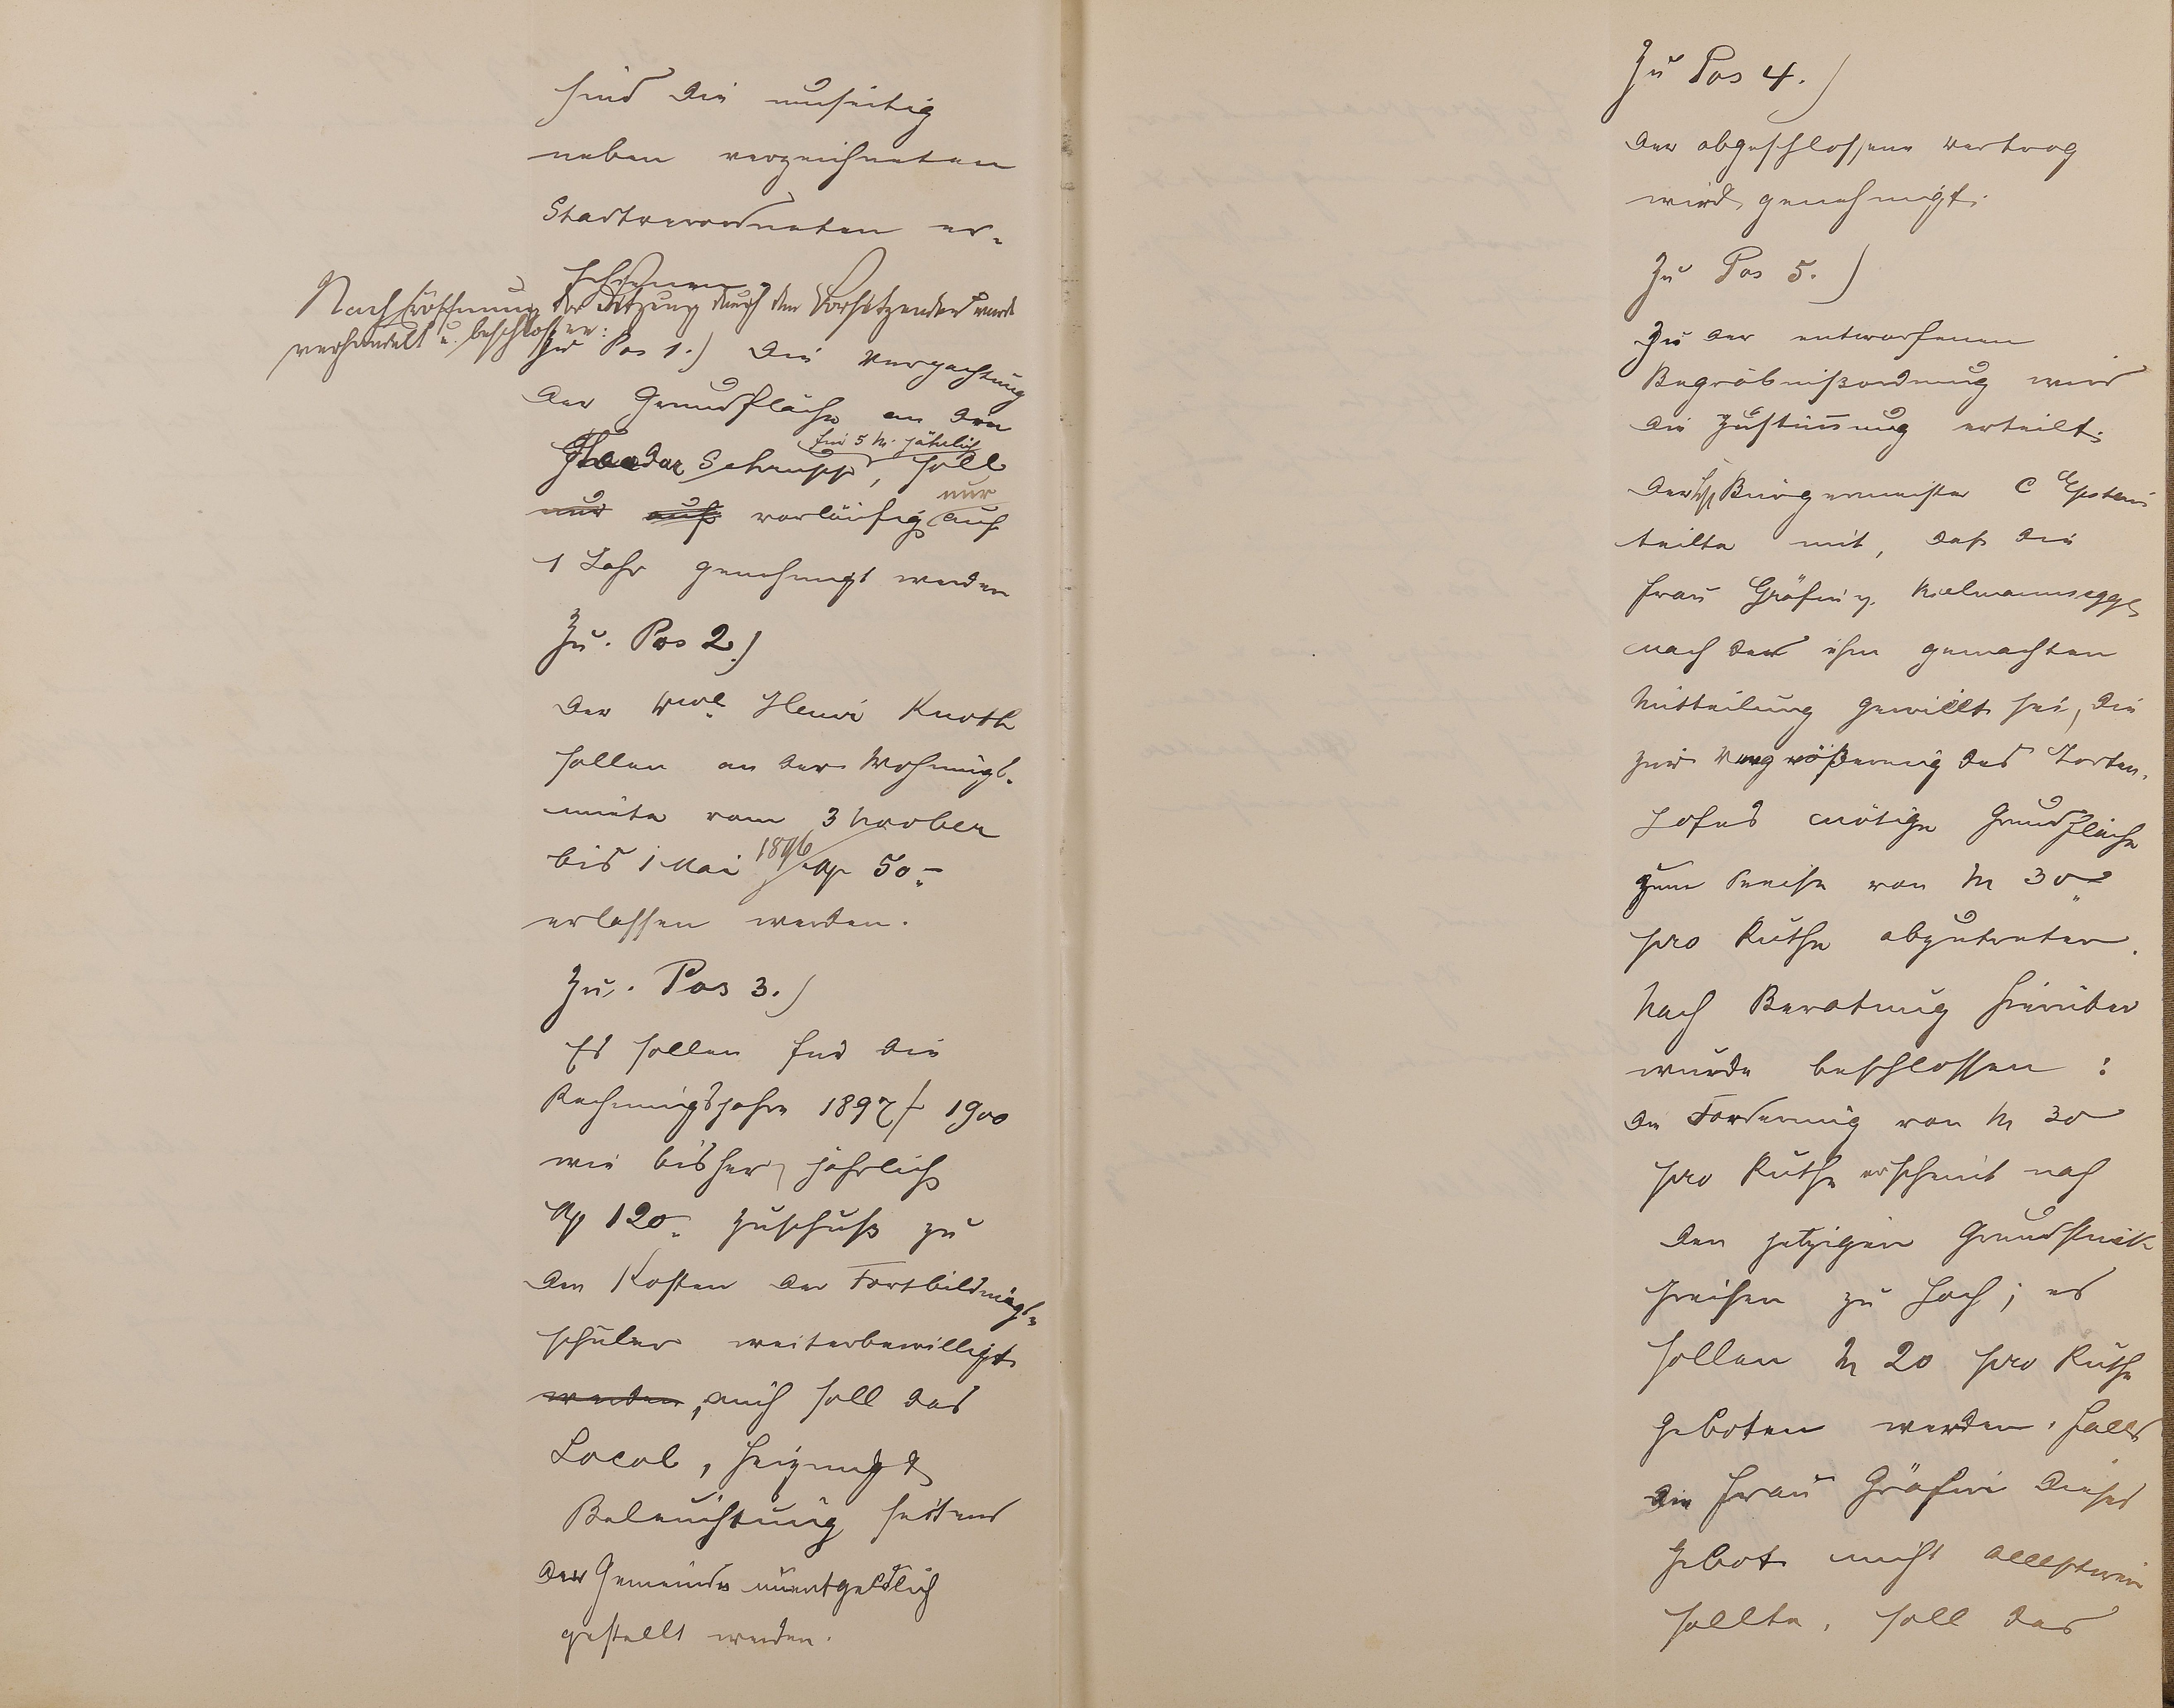 sind die umseitig
neben verzeichneten
Stadtverordneten er-
schienen.
Nach Eröffnung der Sitzung durch den Vorsitzenden wurde
verhandelt u. beschlossen:
Zu Pos 1.) Die Verpachtung
der Grundfläche an den
für 5 M. jährlich
Theodor Schrupp, soll
nur
nur auf vorläufig auf
1 Jahr genehmigt werden
Zu. Pos 2.)
Der Wwe Henri Knoth
sollen an der Wohnungs-
miete vom 3 November
bis 1 Mai 1896 M 50.-
erlassen werden.
Zu. Pos 3.)
Es sollen für die
Rechnungsjahre 1897/ 1900
wie bisher, jährlich
M 120.- Zuschuß zu
den Kosten der Fortbildungs-
schüler weiterbewilligt
werden, auch soll das
Local, Heizung &
Beleuchtung seitens
der Gemeinde unentgeldlich
gestellt werden.
Zu Pos 4.)
Der abgeschlossene Vertrag
wird genehmigt.
Zu Pos 5.)
Zu der entworfenen
Begräbnißordnung wird
die Zustimmung erteilt.
Der Bürgermeister C Epstein
teilte mit, daß die
Frau Gräfin v. Kielmannsegge
nach der ihm gemachten
Mitteilung gewillt sei, die
zur Vergrößerung des Toten-
hofes nötige Grundfläche
zum Preise von M 30.-
pro Ruthe abzutreten.
Nach Beratung hierüber
wurde beschlossen :
Die Forderung von M 30
pro Ruthe erscheint nach
den jetzigen Grundstück
preisen zu hoch; es
sollen M 20 pro Ruthe
geboten werden, falls
die Frau Gräfin dieses
Gebot nicht acceptiren
sollte, soll das